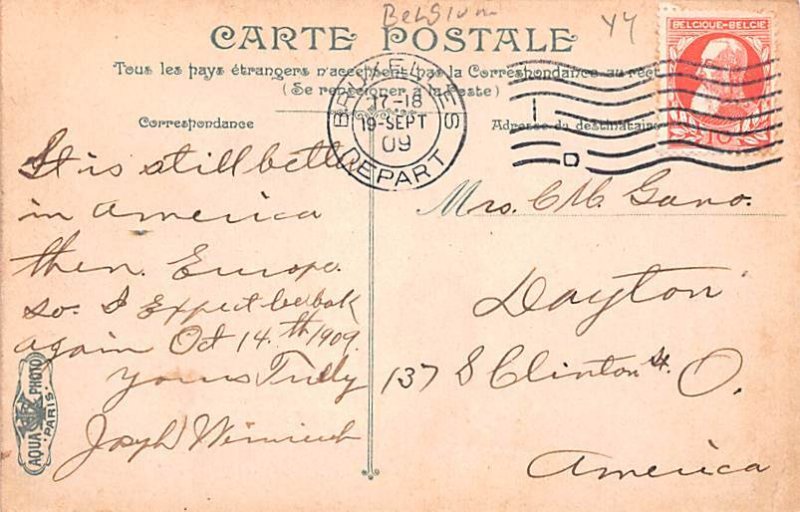 Belgium
44
CARTE POSTALE
Tous les pays étrangers n'acceptent pas la Correspondance au recto
(Se renseigner à la Poste)
BELGIQUE-BELGIË
10
BRUXELLES
17-18
19-SEPT
09
DEPART
Correspondance
Adresse du destinataire
It is still bett
in America
then Europe.
so. I Expect be bak
again Oct 14.th 1909.
yours Truly
Joseph
Mrs. C M. Gano.
Dayton
137 S Clinton St. O.
America
AQUA PHOTO
PARIS